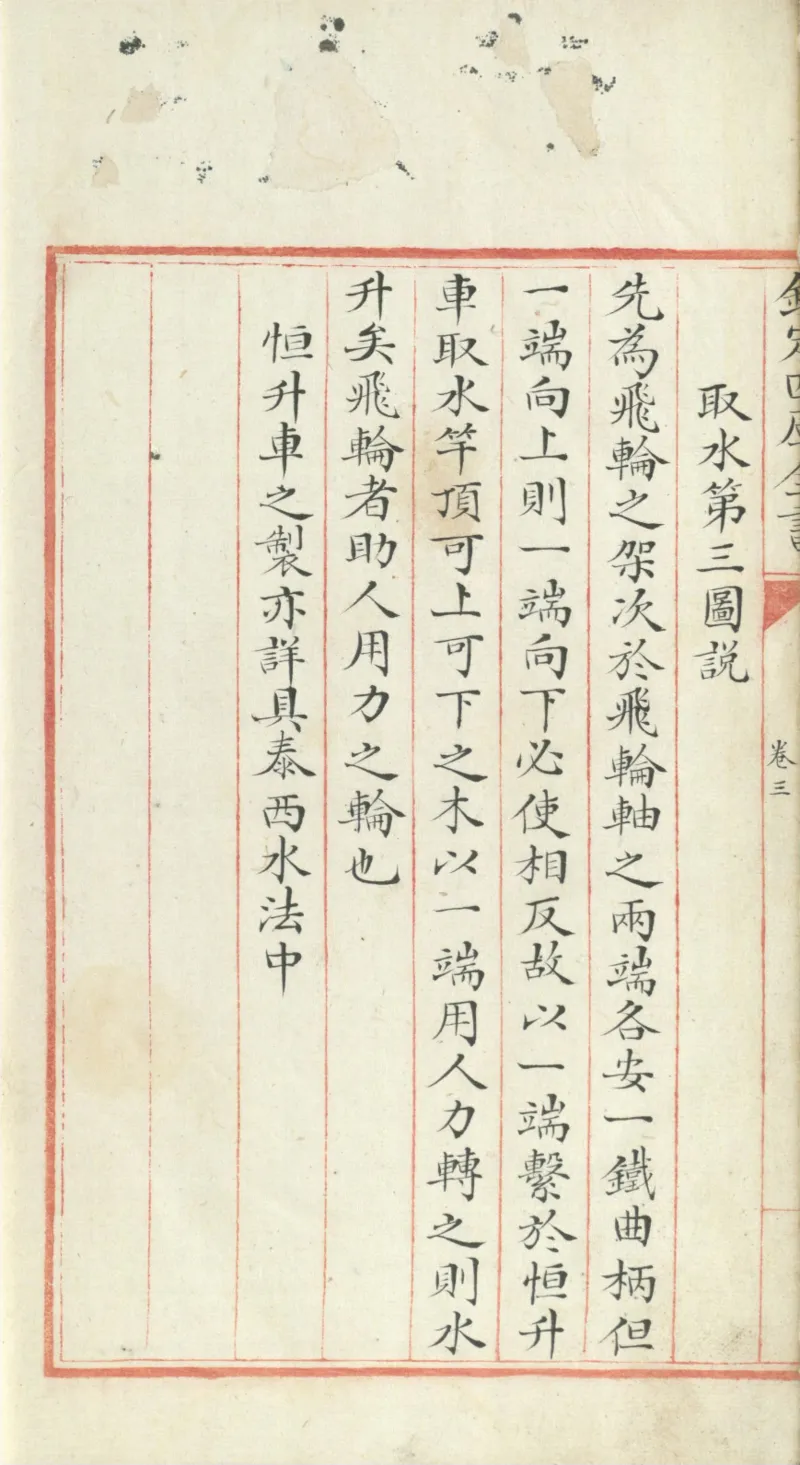 欽定四庫全書
卷三
取水第三圖説
先為飛輪之架次於飛輪軸之兩端各安一鐵曲柄但
一端向上則一端向下必使相反故以一端繫於恒升
車取水竿頂可上可下之木以一端用人力轉之則水
升矣飛輪者助人用力之輪也
恒升車之製亦詳具泰西水法中